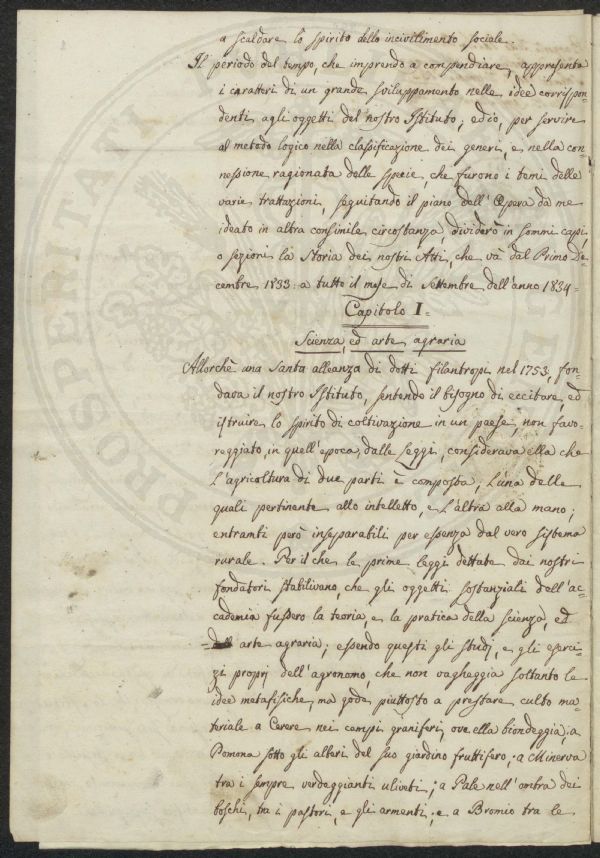 a scaldare lo spirito dello incivilimento sociale.
Il periodo del tempo, che imprendo a compendiare, appresenta
i caratteri di un grande sviluppamento nelle idee corrispon=
denti agli oggetti del nostro Istituto; ed io, per servire
al metodo logico nella classificazione dei generi, e nella con=
nessione ragionata delle specie, che furono i temi delle
varie trattazioni, seguitando il piano dell'Opera da me
ideato in altra consimile circostanza, dividerò in sommi capi,
o sezioni la Storia dei nostri Atti, che và dal Primo De=
cembre 1833 a tutto il mese di Settembre dell'anno 1834=
Capitolo I=
Scienza, ed arte agraria
Allorchè una Santa alleanza di dotti filantropi nel 1753 fon=
dava il nostro Istituto, sentendo il bisogno di eccitare, ed
istruire lo spirito di coltivazione in un paese, non favo=
reggiato, in quell'epoca, dalle Leggi, considerava ella che
L'agricoltura di due parti è composta, L'una delle
quali pertinente allo intelletto, e L'altra alla mano;
entrambi però inseparabili per essenza dal vero sistema
rurale. Per il che le prime leggi dettate dai nostri
fondatori stabilivano, che gli oggetti sostanziali dell'ac=
cademia fussero la teoria, e la pratica della Scienza, ed
arte agraria; essendo questi gli studj, e gli eserci=
zi proprj dell'agronomo, che non vagheggia soltanto le
idee metafisiche, ma gode piuttosto a prestare culto ma=
teriale a Cerere nei campi graniferi, ove ella biondeggia; a
Pomona sotto gli alberi del suo giardino fruttifero; a Minerva
tra i sempre verdeggianti uliveti; a Pale nell'ombra dei
boschi, tra i pastori, e gli armenti; e a Bromio tra le
PROSPERITATI